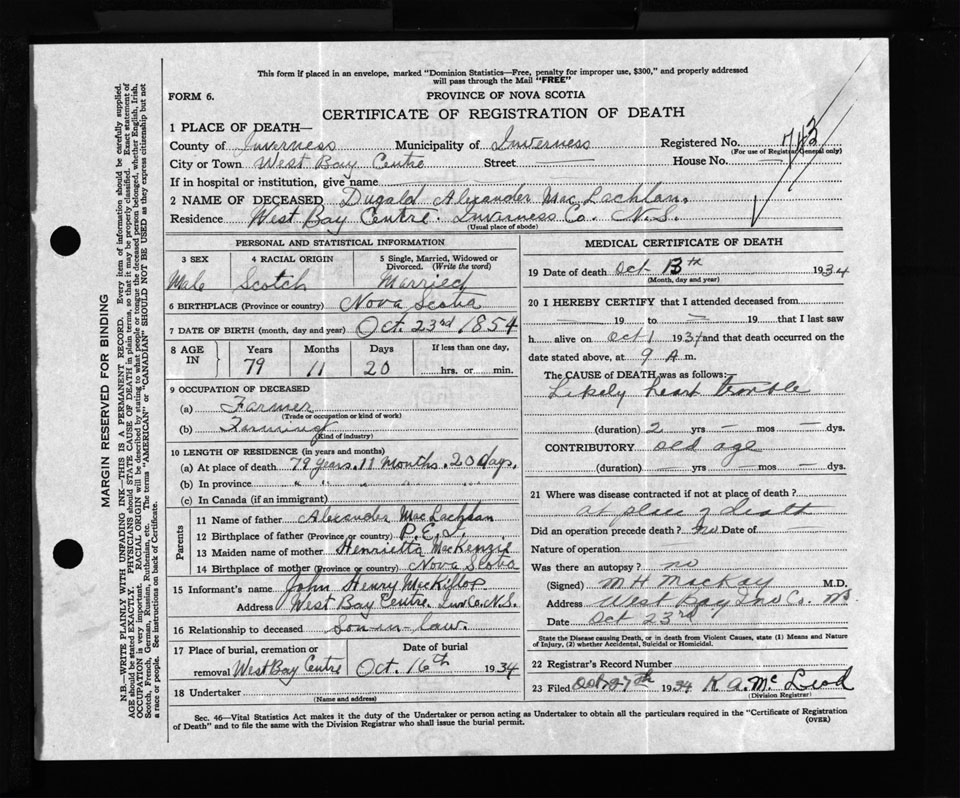 This form if placed in an envelope, marked "Dominion Statistics—Free, penalty for improper use, $300," and properly addressed
will pass through the Mail "FREE"
FORM 6.
PROVINCE OF NOVA SCOTIA
CERTIFICATE OF REGISTRATION OF DEATH
1 PLACE OF DEATH—
County of Inverness Municipality of Inverness Registered No. 743
(For use of Registrar General only)
City or Town West Bay Centre Street — House No. —
If in hospital or institution, give name
2 NAME OF DECEASED Dugald Alexander MacLachlan
Residence West Bay Centre. Inverness Co. N.S.
(Usual place of abode)
PERSONAL AND STATISTICAL INFORMATION
3 SEX 4 RACIAL ORIGIN 5 Single, Married, Widowed or
Divorced. (Write the word)
Male Scotch Married
6 BIRTHPLACE (Province or country) Nova Scotia
7 DATE OF BIRTH (month, day and year) Oct. 23rd 1854
8 AGE IN Years Months Days If less than one day,
79 11 20 hrs. or min.
9 OCCUPATION OF DECEASED
(a) Farmer
(Trade or occupation or kind of work)
(b) Farming
(Kind of industry)
10 LENGTH OF RESIDENCE (in years and months)
(a) At place of death 79 Years. 11 Months. 20 Days.
(b) In province " " " " "
(c) In Canada (if an immigrant)
Parents
11 Name of father Alexander MacLachlan
12 Birthplace of father (Province or country) P.E.I.
13 Maiden name of mother Henrietta MacKenzie
14 Birthplace of mother (Province or country) Nova Scotia
15 Informant's name John Henry MacKillop
Address West Bay Centre. Inv Co. N.S.
16 Relationship to deceased Son-in-law.
17 Place of burial, cremation or Date of burial
removal West Bay Centre Oct. 16th 1934
18 Undertaker
(Name and address)
MEDICAL CERTIFICATE OF DEATH
19 Date of death Oct 13th 1934
(Month, day and year)
20 I HEREBY CERTIFY that I attended deceased from
— 19 to — 19 that I last saw
h alive on Oct 1 1934 and that death occurred on the
date stated above, at 9 A. m.
The CAUSE of DEATH was as follows:
Likely heart trouble
(duration) 2 yrs — mos — dys.
CONTRIBUTORY old age
(duration) — yrs — mos — dys.
21 Where was disease contracted if not at place of death?
at place of death
Did an operation precede death? no Date of —
Nature of operation
Was there an autopsy? no
(Signed) M H MacKay M.D.
Address West Bay Inv Co. NS
Date Oct 23rd
State the Disease causing Death, or in death from Violent Causes, state (1) Means and Nature
of Injury, (2) whether Accidental, Suicidal or Homicidal.
22 Registrar's Record Number
23 Filed Oct 27th 1934 K. A. McLeod
(Division Registrar)
Sec. 46—Vital Statistics Act makes it the duty of the Undertaker or person acting as Undertaker to obtain all the particulars required in the "Certificate of Registration
of Death" and to file the same with the Division Registrar who shall issue the burial permit.
(OVER)
MARGIN RESERVED FOR BINDING
N.B.—WRITE PLAINLY WITH UNFADING INK—THIS IS A PERMANENT RECORD. Every item of information should be carefully supplied.
AGE should be stated EXACTLY. PHYSICIANS should STATE CAUSE OF DEATH in plain terms, so that it may be properly classified. Exact statement of
OCCUPATION is very important. RACIAL ORIGIN will be described by stating to what people or tongue the deceased person belonged, whether English, Irish,
Scotch, French, German, Russian, Ruthenian, etc. The terms "AMERICAN" or "CANADIAN" SHOULD NOT BE USED as they express citizenship but not
a race or people. See instructions on back of Certificate.